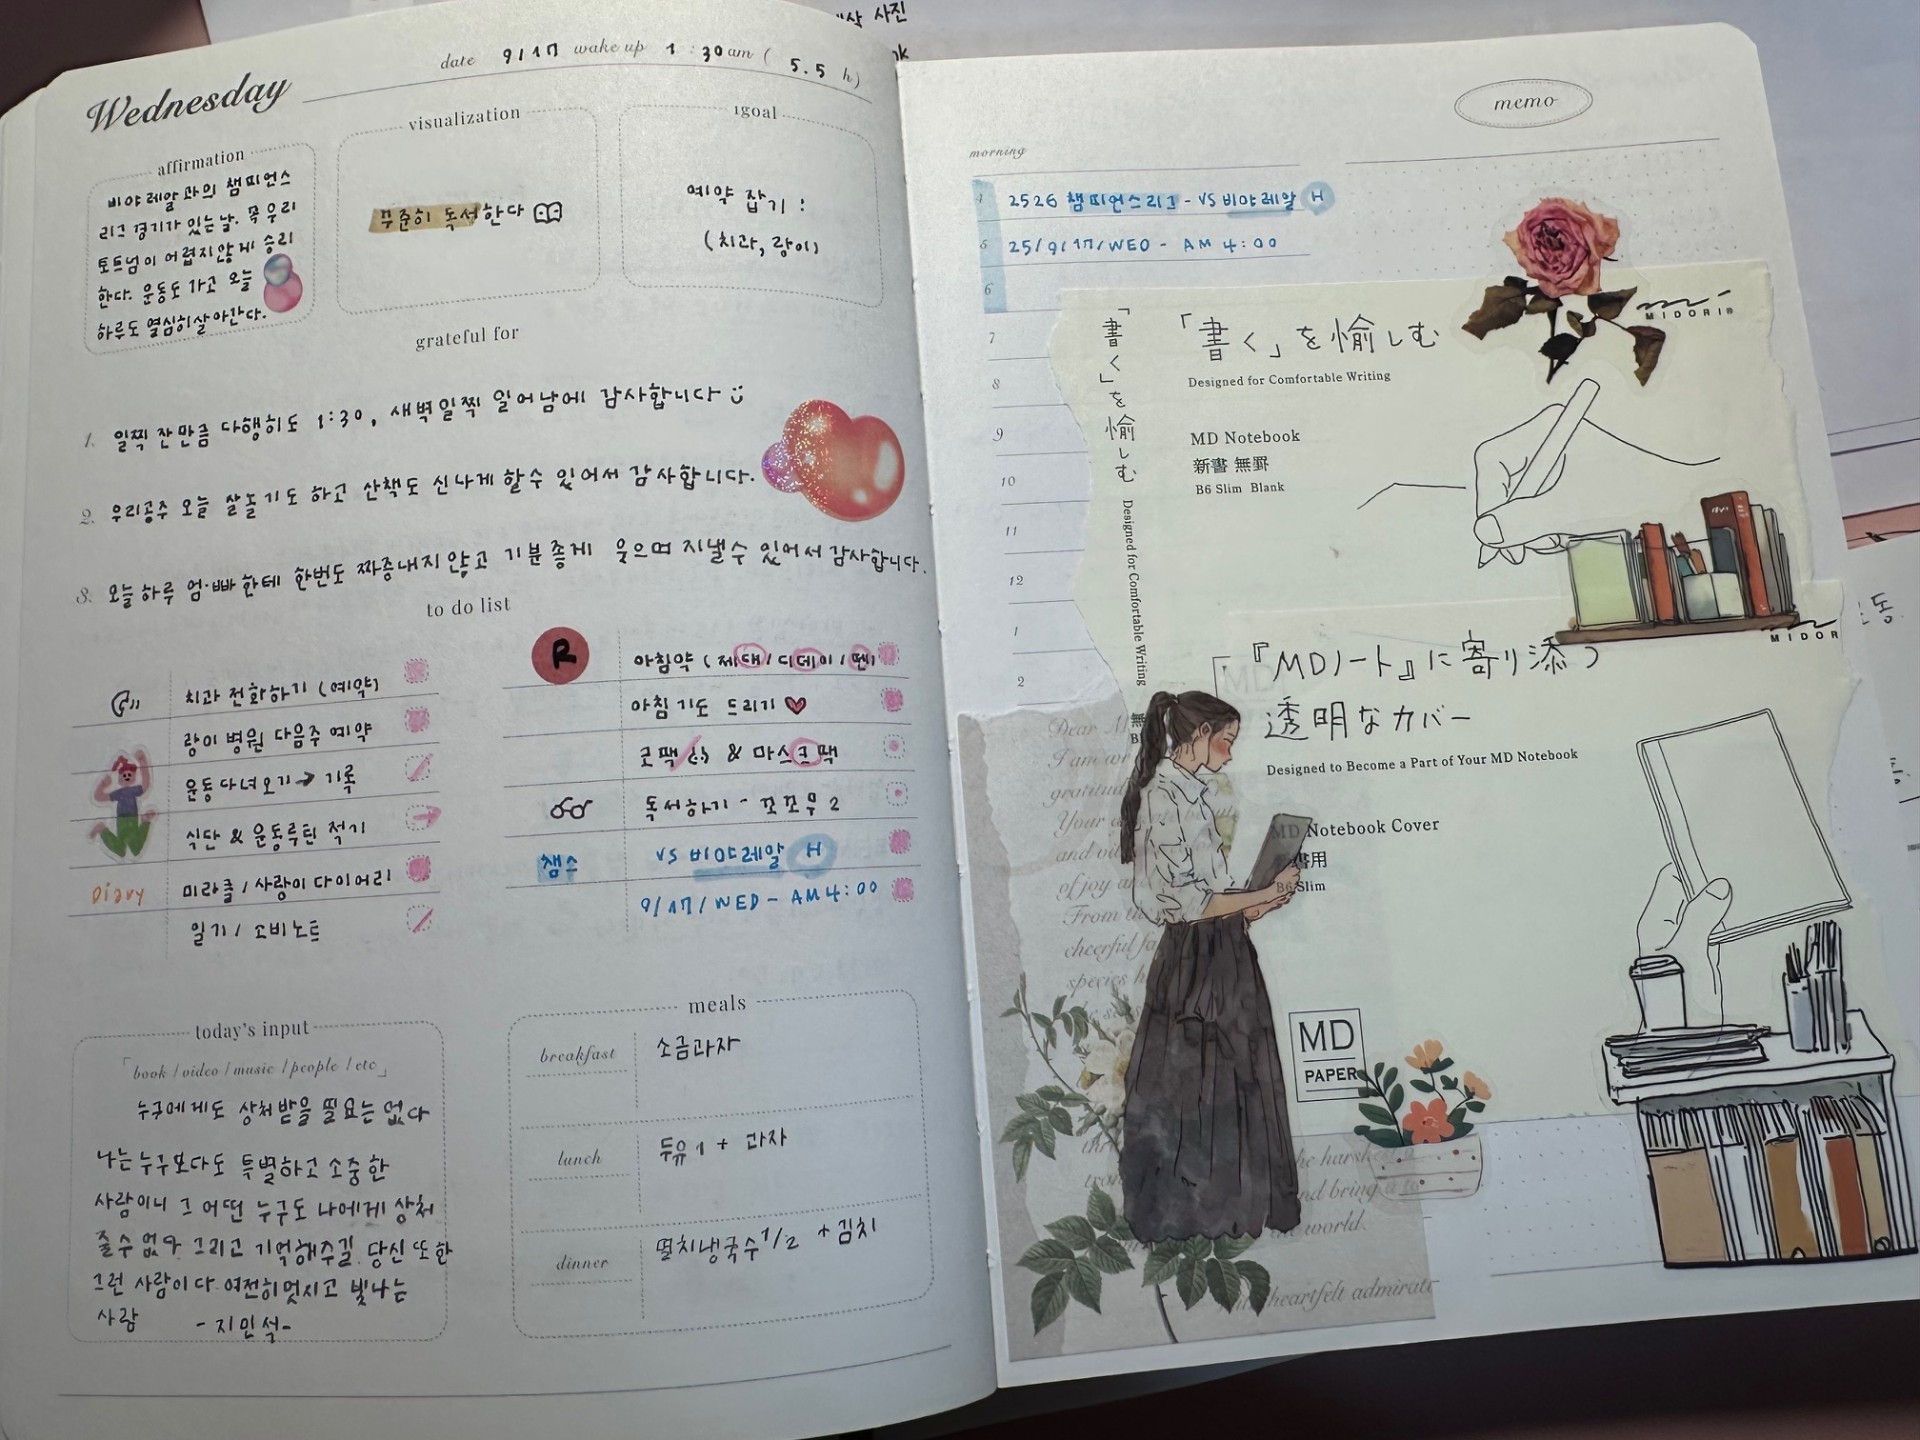 사진
Wednesday
date 9/17 wake up 1:30 am ( 5.5 h )
affirmation
비야레알과의 챔피언스
리그 경기가 있는 날. 꼭 우리
토트넘이 어렵지않게 승리
한다. 운동도 가고 오늘
하루도 열심히 살아간다.
visualization
꾸준히 독서한다
1goal
예약 잡기 !
(치과, 랑이)
grateful for
1. 일찍 잔만큼 다행히도 1:30, 새벽일찍 일어남에 감사합니다
2. 우리공주 오늘 살놀기도 하고 산책도 신나게 할수 있어서 감사합니다.
3. 오늘 하루 엄·빠한테 한번도 짜증내지 않고 기분좋게 웃으며 지낼수 있어서 감사합니다.
to do list
치과 전화하기 (예약)
랑이 병원 다음주 예약
운동 다녀오기 → 기록
식단 & 운동루틴 적기
Diary 미라클 / 사랑이 다이어리
일기 / 소비노트
R 아침약 ( 제대 / 디데이 / 펜)
아침 기도 드리기 ♥
코팩 & 마스크팩
독서하기 - 꼬꼬무 2
챔스 VS 비야레알 H
9/17/WED - AM 4:00
today's input
「book / video / music / people / etc」
누구에게도 상처받을 필요는 없다
나는 누구보다도 특별하고 소중한
사람이니 그 어떤 누구도 나에게 상처
줄수 없다 그리고 기억해주길. 당신 또한
그런 사람이다. 여전히 멋지고 빛나는
사람 - 지민석 -
meals
breakfast 소금과자
lunch 두유 1 + 과자
dinner 멸치냉국수 1/2 + 김치
memo
morning
4 2526 챔피언스리그 - VS 비야레알 H
5 25/9/17/WED - AM 4:00
6
7
8
9
10
11
12
1
2
「書く」を愉しむ Designed for Comfortable Writing 無
MIDORI®
「書く」を愉しむ
Designed for Comfortable Writing
MD Notebook
新書 無罫
B6 Slim Blank
MIDOR
『MDノート』に寄り添う
透明なカバー
Designed to Become a Part of Your MD Notebook
MD Notebook Cover
書用
B6 Slim
MD
PAPER
Dear
I am
gratitud
Your
and
of joy
From
cheerful
species
the harsh
and bring
the world.
heartfelt admirat